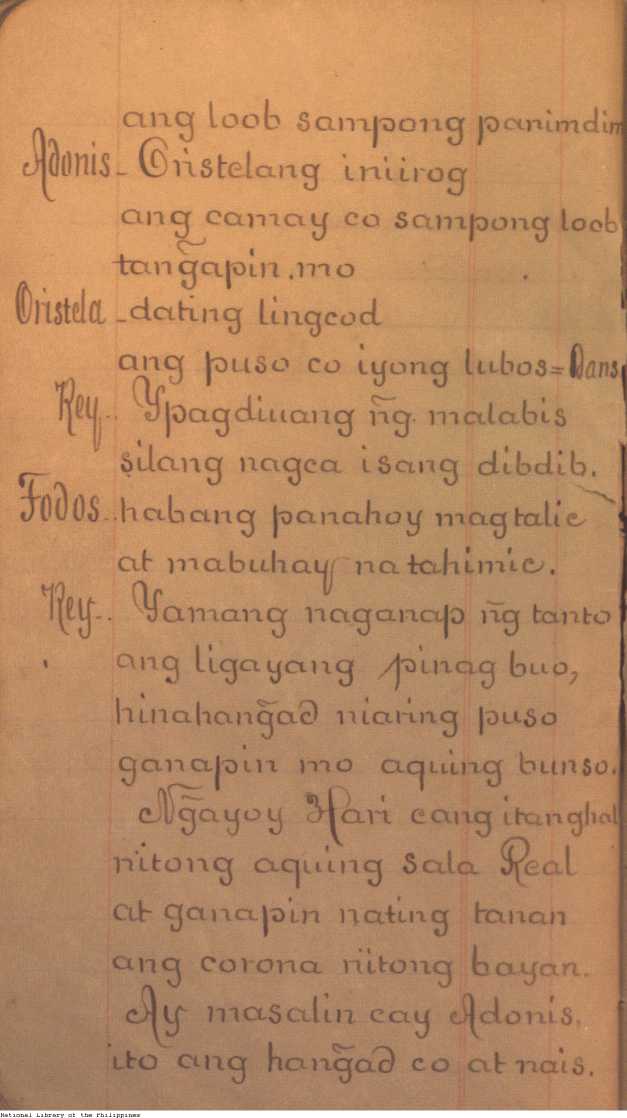 ang loob sampong panimdim
Adonis- Oristelang iniirog
ang camay co sampong loob
tang̃apin mo
Oristela -dating lingcod
ang puso co iyong lubos= Dans
Rey.. Ypagdiuang ng̃. malabis
silang nagca isang dibdib.
Fodos..habang panahoy magtalic
at mabuhay na tahimic.
Rey-. Yamang naganap ng̃ tanto
ang ligayang pinag buo,
hinahang̃ad niaring puso
ganapin mo aquing bunso.
Ng̃ayoy Hari cang itanghal
nitong aquing sala Real
at ganapin nating tanan
ang corona nitong bayan.
Ay masalin cay Adonis,
ito ang hang̃ad co at nais.
National Library of the Philippines